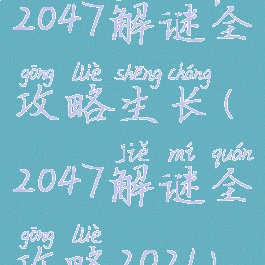 2047解谜全
gōng lüè shēng cháng
攻略生长(
jiě mí quán
2047解谜全
gōng lüè
攻略2021)